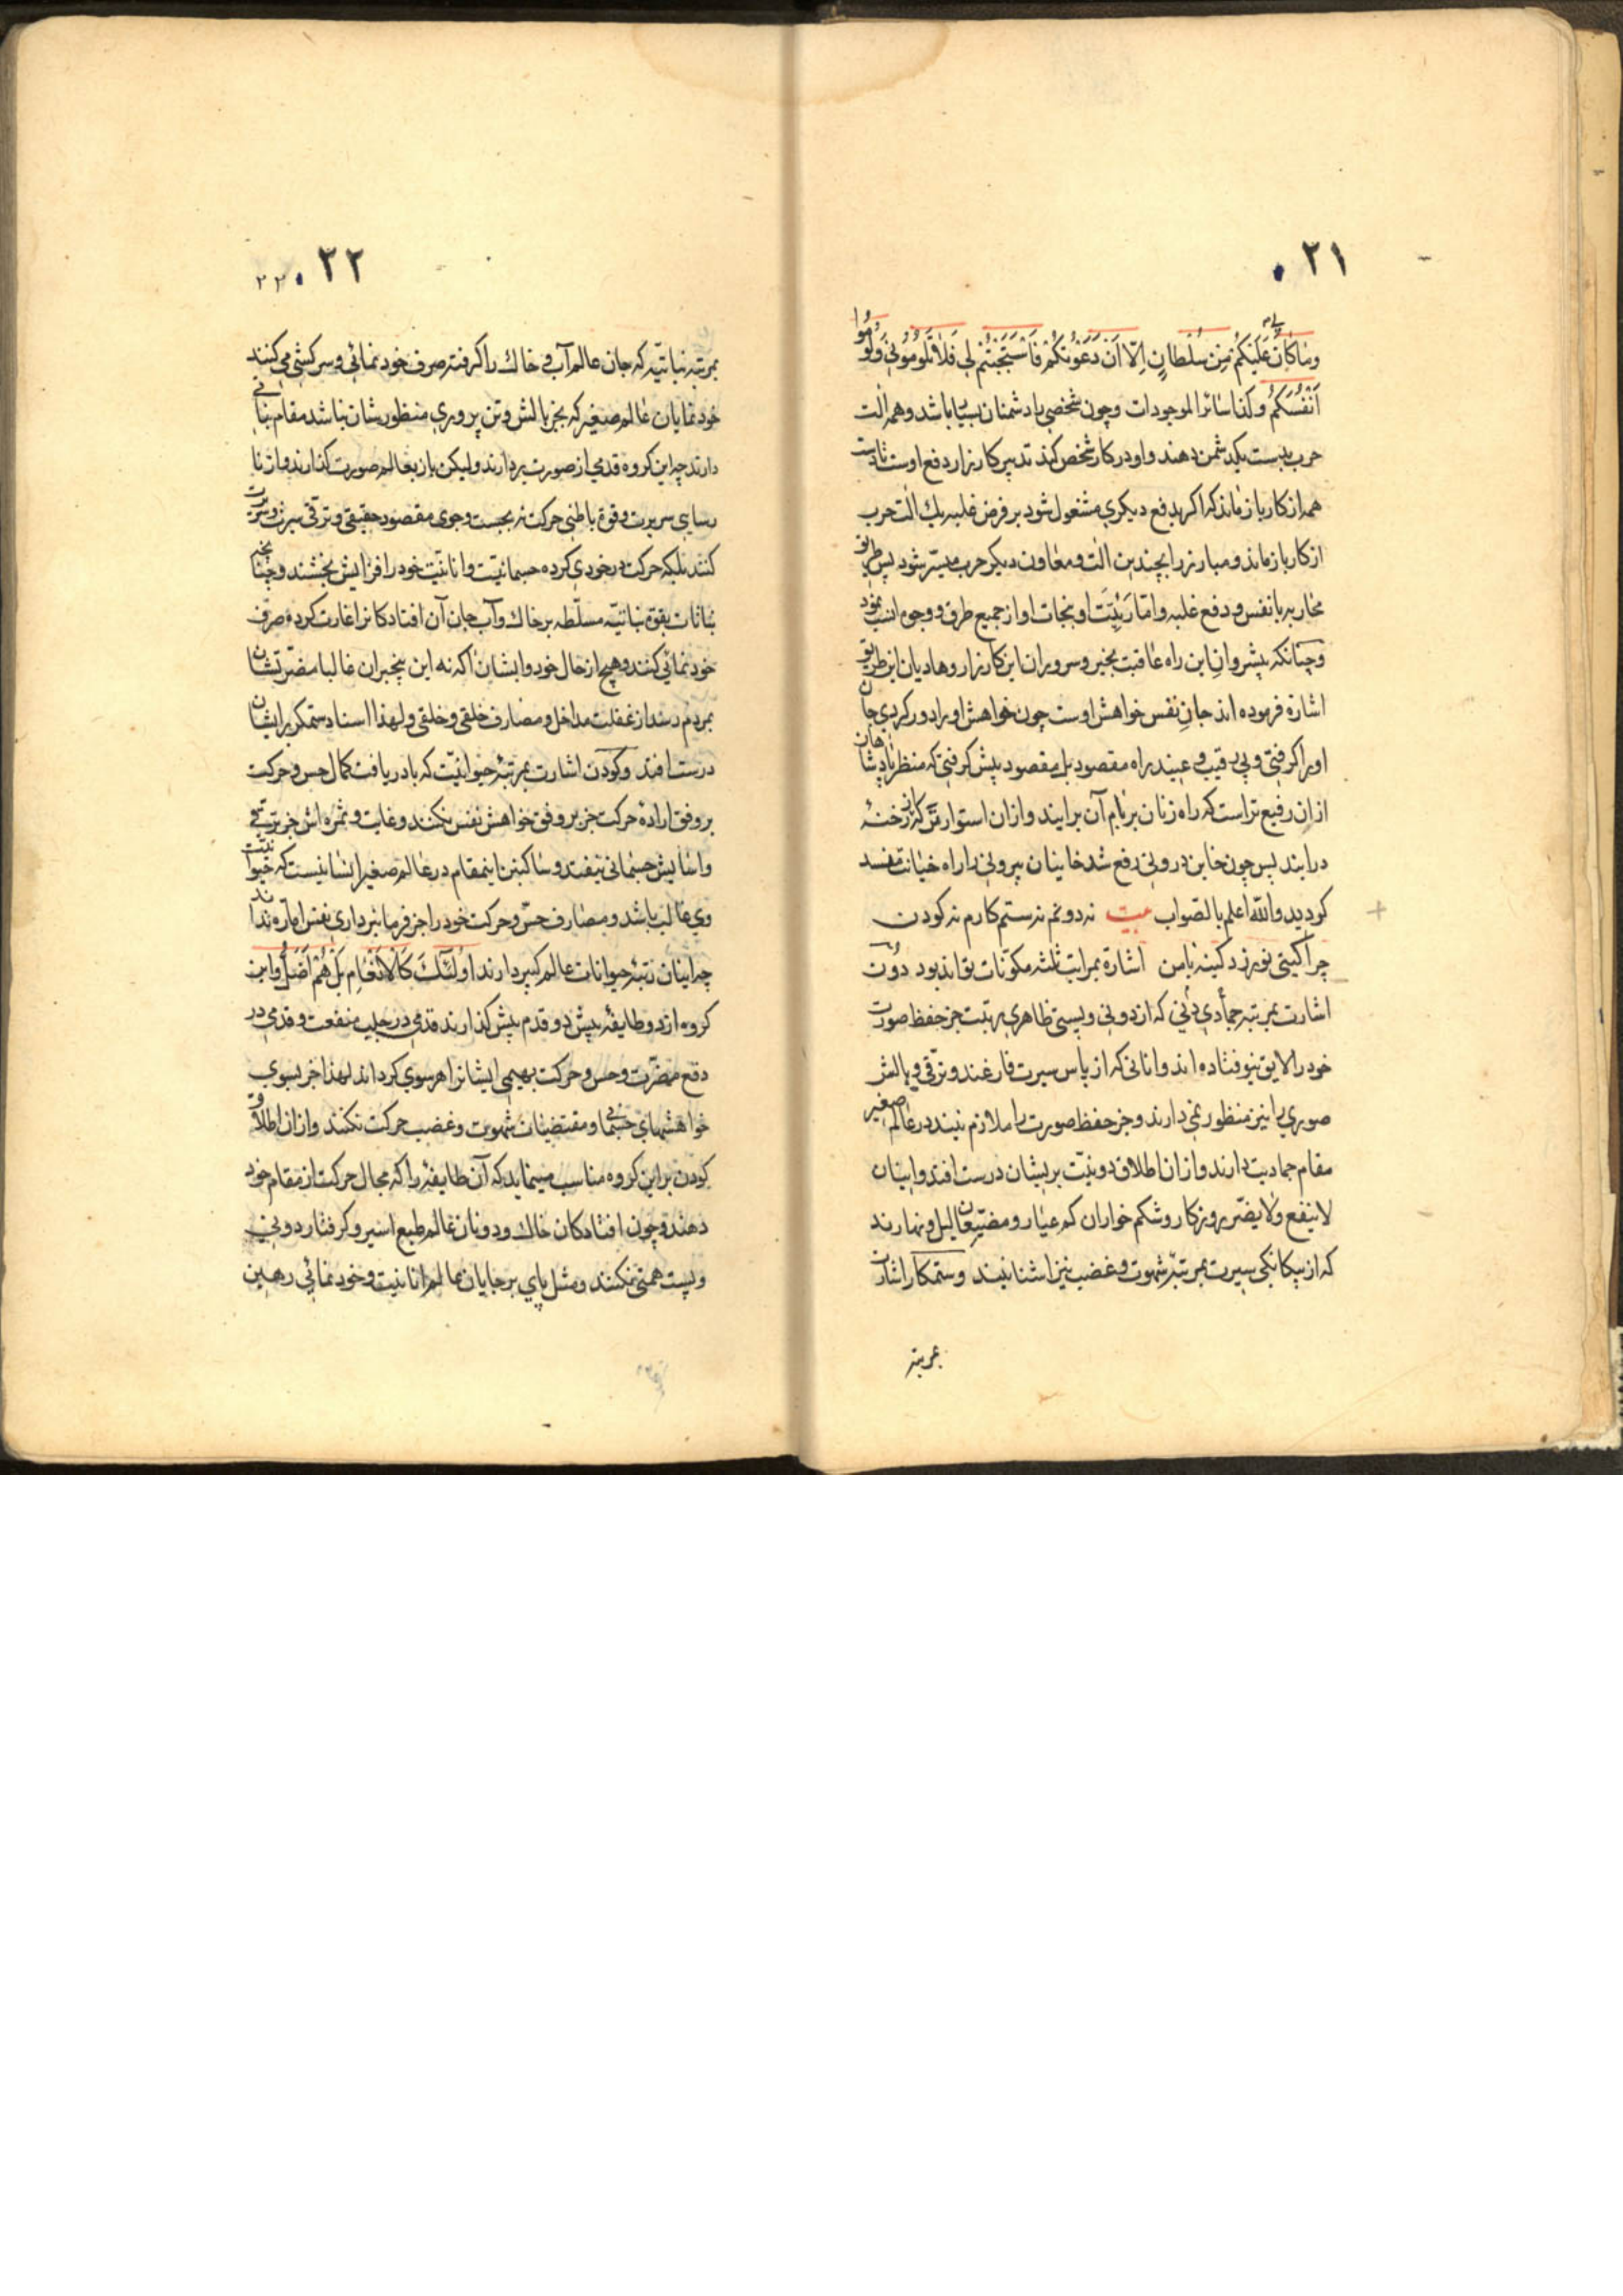 ۲۱
وماكان لي عليكم من سلطان الا ان دعوتكم فاستجبتم لي فلا تلوموني ولوموا
انفسكم وكذا سائر الموجودات وچون شخصی با دشمنان بسیار باشد وهمه الت
حرب بدست یکدشمن دهند واو در کار شخص کند تدبیر کارزار دفع اوست تا دست
همه از کار باز ماند که اکر بدفع دیکری مشغول شود بر فرض غلبه یك الت حرب
از کار باز ماند ومبارز را بچندین الت ومعاون دیکر حرب میسر شود پس طریق
محاربه با نفس ودفع غلبه وامّاریّت او ونجات او از جمیع طرق ووجوه انسب نمود
وچنانکه پیشروان این راه عاقبت بخیر وسروران این کارزار وهادیان این طریق
اشاره فرموده اند جان نفس خواهش اوست چون خواهش اورا دور کردی جان
اورا کرفتی وبی رقیب وعیبند راه مقصود بل مقصود پیش کرفتی که منظر پادشاهان
ازان رفیع تر است که راه زنان بر بام آن برایند وازان استوارتر که از رخنهٔ
درایند پس چون خاین درونی رفع شد خاینان بیرونی را راه خیانت مسد
کردید والله اعلم بالصواب بیت نه دونم نه ستمکارم نه کودن
چرا کیتی نورزد کینه با من اشاره بمراتب ثلثه مکوّنات تواند بود دون
اشارت بمرتبه جمادی دنی که از دونی وپستی ظاهری برتبت جز حفظ صورت
خود را لایق نیوفتاده اند وانانی که از پاس سیرت فارغند وترقی وبالش
صوری را نیز منظور نمی دارند وجز حفظ صورت را ملازم نیند در عالم صغیر
مقام جمادیت دارند وازان اطلاق دونیّت بریشان درست افتد واینان
لا ینفع ولا یضر روزکار وشکم خواران کم عیار ومضیّعان لیل ونهارند
که از بیکانکی سیرت بمرتبهٔ شهوت وغضب نیز اشنا نیند وستمکار اشارت
بمرتبه
۲۲
۲۲
بمرتبه نباتیّه که جان عالم آب وخاك را کرفته صرف خود نمائی وسرکشی می کنند
خودنمایان عالم صغیر که بجز بالش وتن پروری منظورشان نباشد مقام نباتی
دارند چه این کروه قدمی از صورت بردارند ولیکن باز بعالم صورت کذارند واز نا
رسایی سریرت وقوة باطنی حرکت نه بجست وجوی مقصود حقیقی وترقی سیرت وسریرت
کنند بلکه حرکت در خودی کرده جسمانیت وانانیّت خود را افزایش بخشند وچنانچه
نباتات بقوة نباتیّه مسلّطه بر خاك وآب جان آن افتادکانرا غارت کرده صرف
خود نمائی کنند وهیچ از حال خود وایشان آکه نه این بیخبران غالبا مضرّتشان
بمردم رسد از غفلت مداخل ومصارف خلقی وخلقی ولهذا اسناد ستمکر برایشان
درست افتد وکودن اشارت بمرتبهٔ حیوانیّت که با دریافت کمال حس وحرکت
بر وفق اراده حرکت جز بر وفق خواهش نفس نکنند وغایت وثمره اش جز بترقی
واسایش جسمانی نیفتد وساکنین اینمقام در عالم صغیر انسانیست که حیوانیّت
وی غالب باشد ومصارف حسّ وحرکت خود را جز فرمانبرداری نفس امّاره نداند
چه اینان رتبهٔ حیوانات عالم کبیر دارند اولئك كالانعام بل هم اضل واین
کروه از دو طایفهٔ پیش دو قدم پیش کذارند قدمی در جلب منفعت وقدمی در
دفع مضرّت وحس وحرکت بهیمی ایشانرا هر سوی کرداند لهذا جز بسوی
خواهشهای جسمانی ومقتضیات شهوت وغضب حرکت نکنند وازان اطلاق
کودن براین کروه مناسب مینماید که آن طایفه را که مجال حرکت از مقام خود
دهند وچون افتادکان خاك ودونان عالم طبع اسیر وکرفتار دونی
وپست همتی نکنند ومثل پای برجایان عالم انانیت وخود نمائی رهین